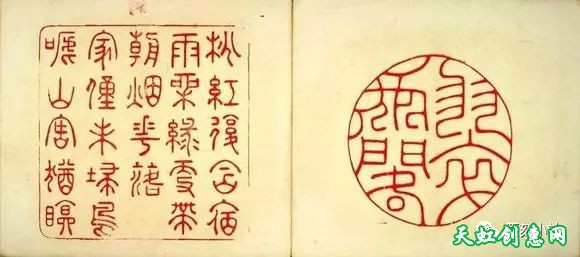 桃紅復含宿
雨柳緑更帶
朝烟花落
家僮未埽鳥
啼山客猶眠
天虹创惠网